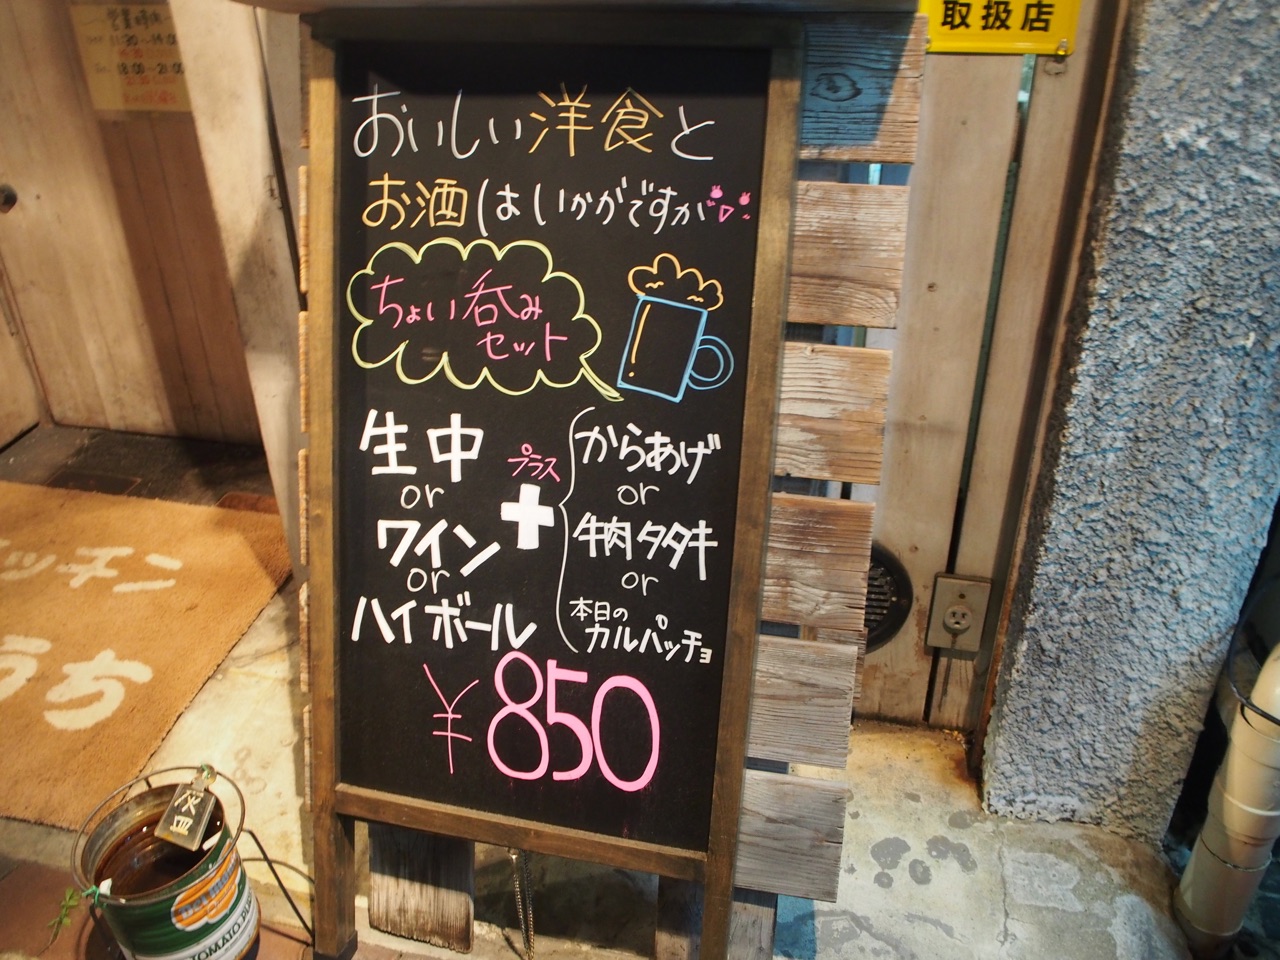 取扱店
営業時間
11:30～14:00
18:00～21:00
おいしい洋食と
お酒はいかがですか
ちょい呑み
セット
生中
or
ワイン
or
ハイボール
プラス
+
からあげ
or
牛肉タタキ
or
本日の
カルパッチョ
¥850
ッチン
うち
灰皿
TOMATO